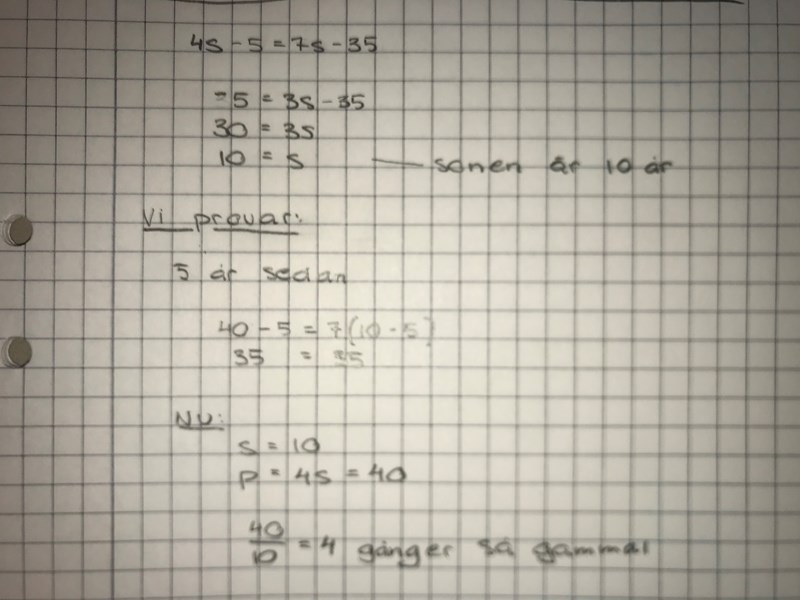 4s - 5 = 7s - 35
-5 = 3s - 35
30 = 3s
10 = s — sonen är 10 år
Vi provar:
5 år sedan
40 - 5 = 7(10 - 5)
35 = 35
Nu:
s = 10
p = 4s = 40
40/10 = 4 gånger så gammal